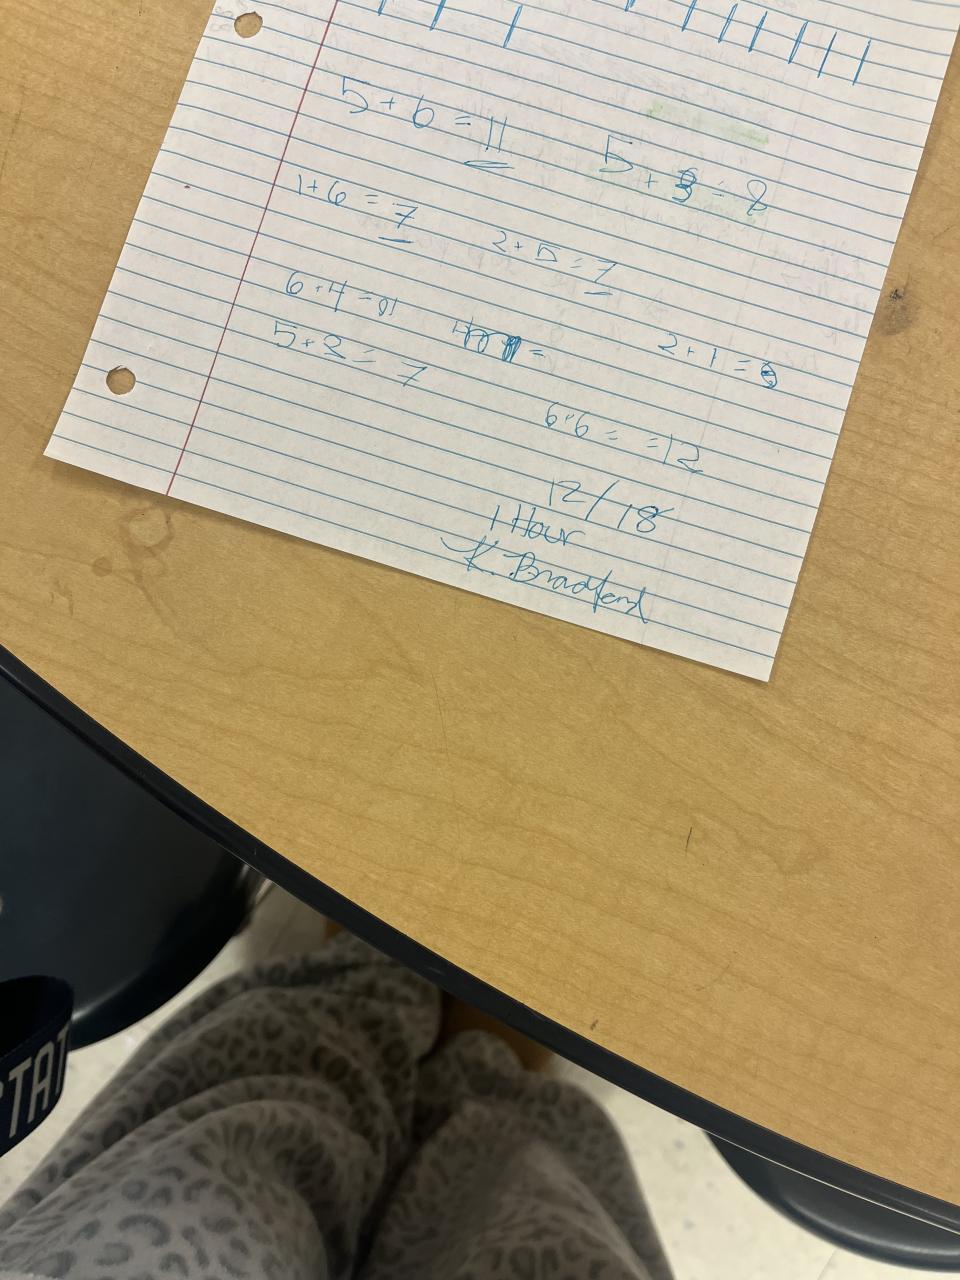 5 + 6 = 11
5 + 3 = 8
1 + 6 = 7
2 + 5 = 7
6 + 4 =
=
2 + 1 =
5 + 2 = 7
6 + 6 = = 12
12/18
1 Hour
K. Bradford
TAT